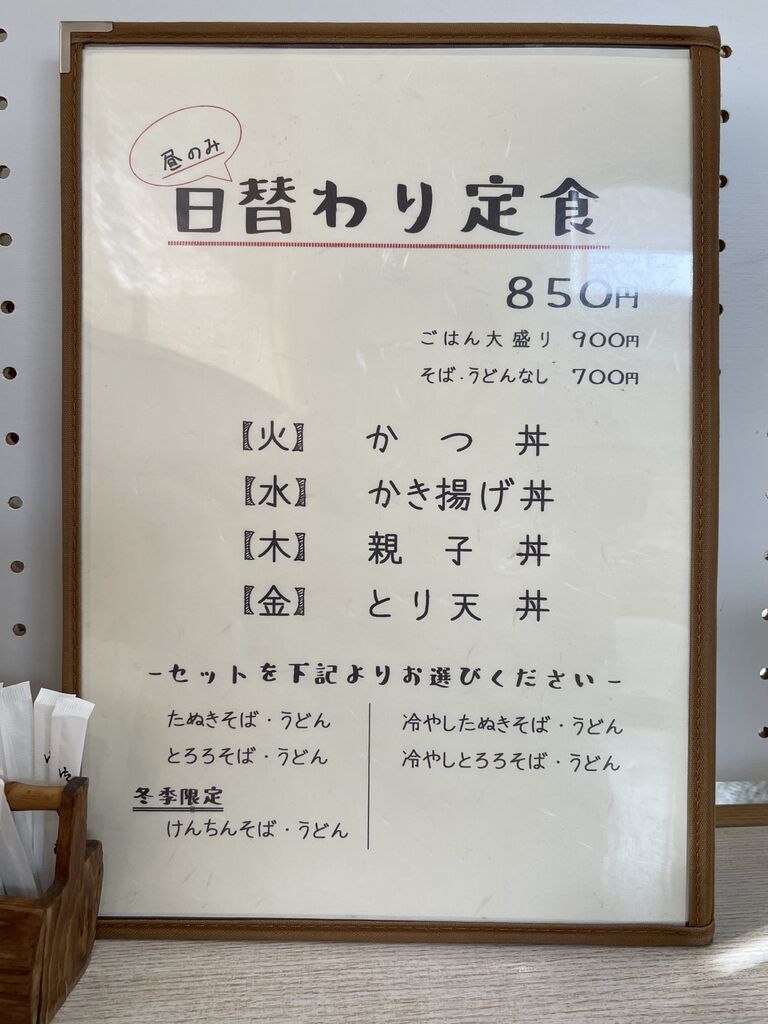 昼のみ
日替わり定食
850円
ごはん大盛り 900円
そば・うどんなし 700円
【火】 かつ丼
【水】 かき揚げ丼
【木】 親子丼
【金】 とり天丼
-セットを下記よりお選びください-
たぬきそば・うどん
とろろそば・うどん
冬季限定
けんちんそば・うどん
冷やしたぬきそば・うどん
冷やしとろろそば・うどん